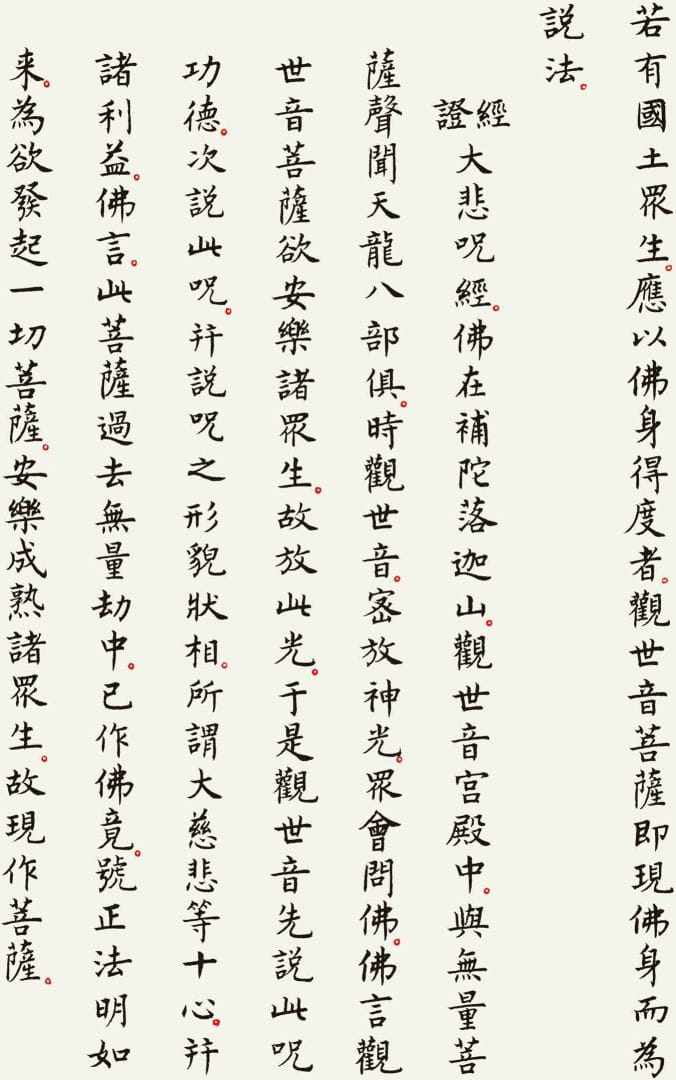 若有國土眾生。應以佛身得度者。觀世音菩薩即現佛身而為
説法。
經證 大悲呪經。佛在補陀落迦山。觀世音宮殿中。與無量菩
薩聲聞天龍八部俱。時觀世音。宻放神光。眾會問佛。佛言觀
世音菩薩欲安樂諸眾生。故放此光。于是觀世音先説此呪
功德。次説此呪。并説呪之形貌狀相。所謂大慈悲等十心。并
諸利益。佛言。此菩薩過去無量劫中。已作佛竟。號正法明如
来。為欲發起一切菩薩。安樂成熟諸眾生。故現作菩薩。